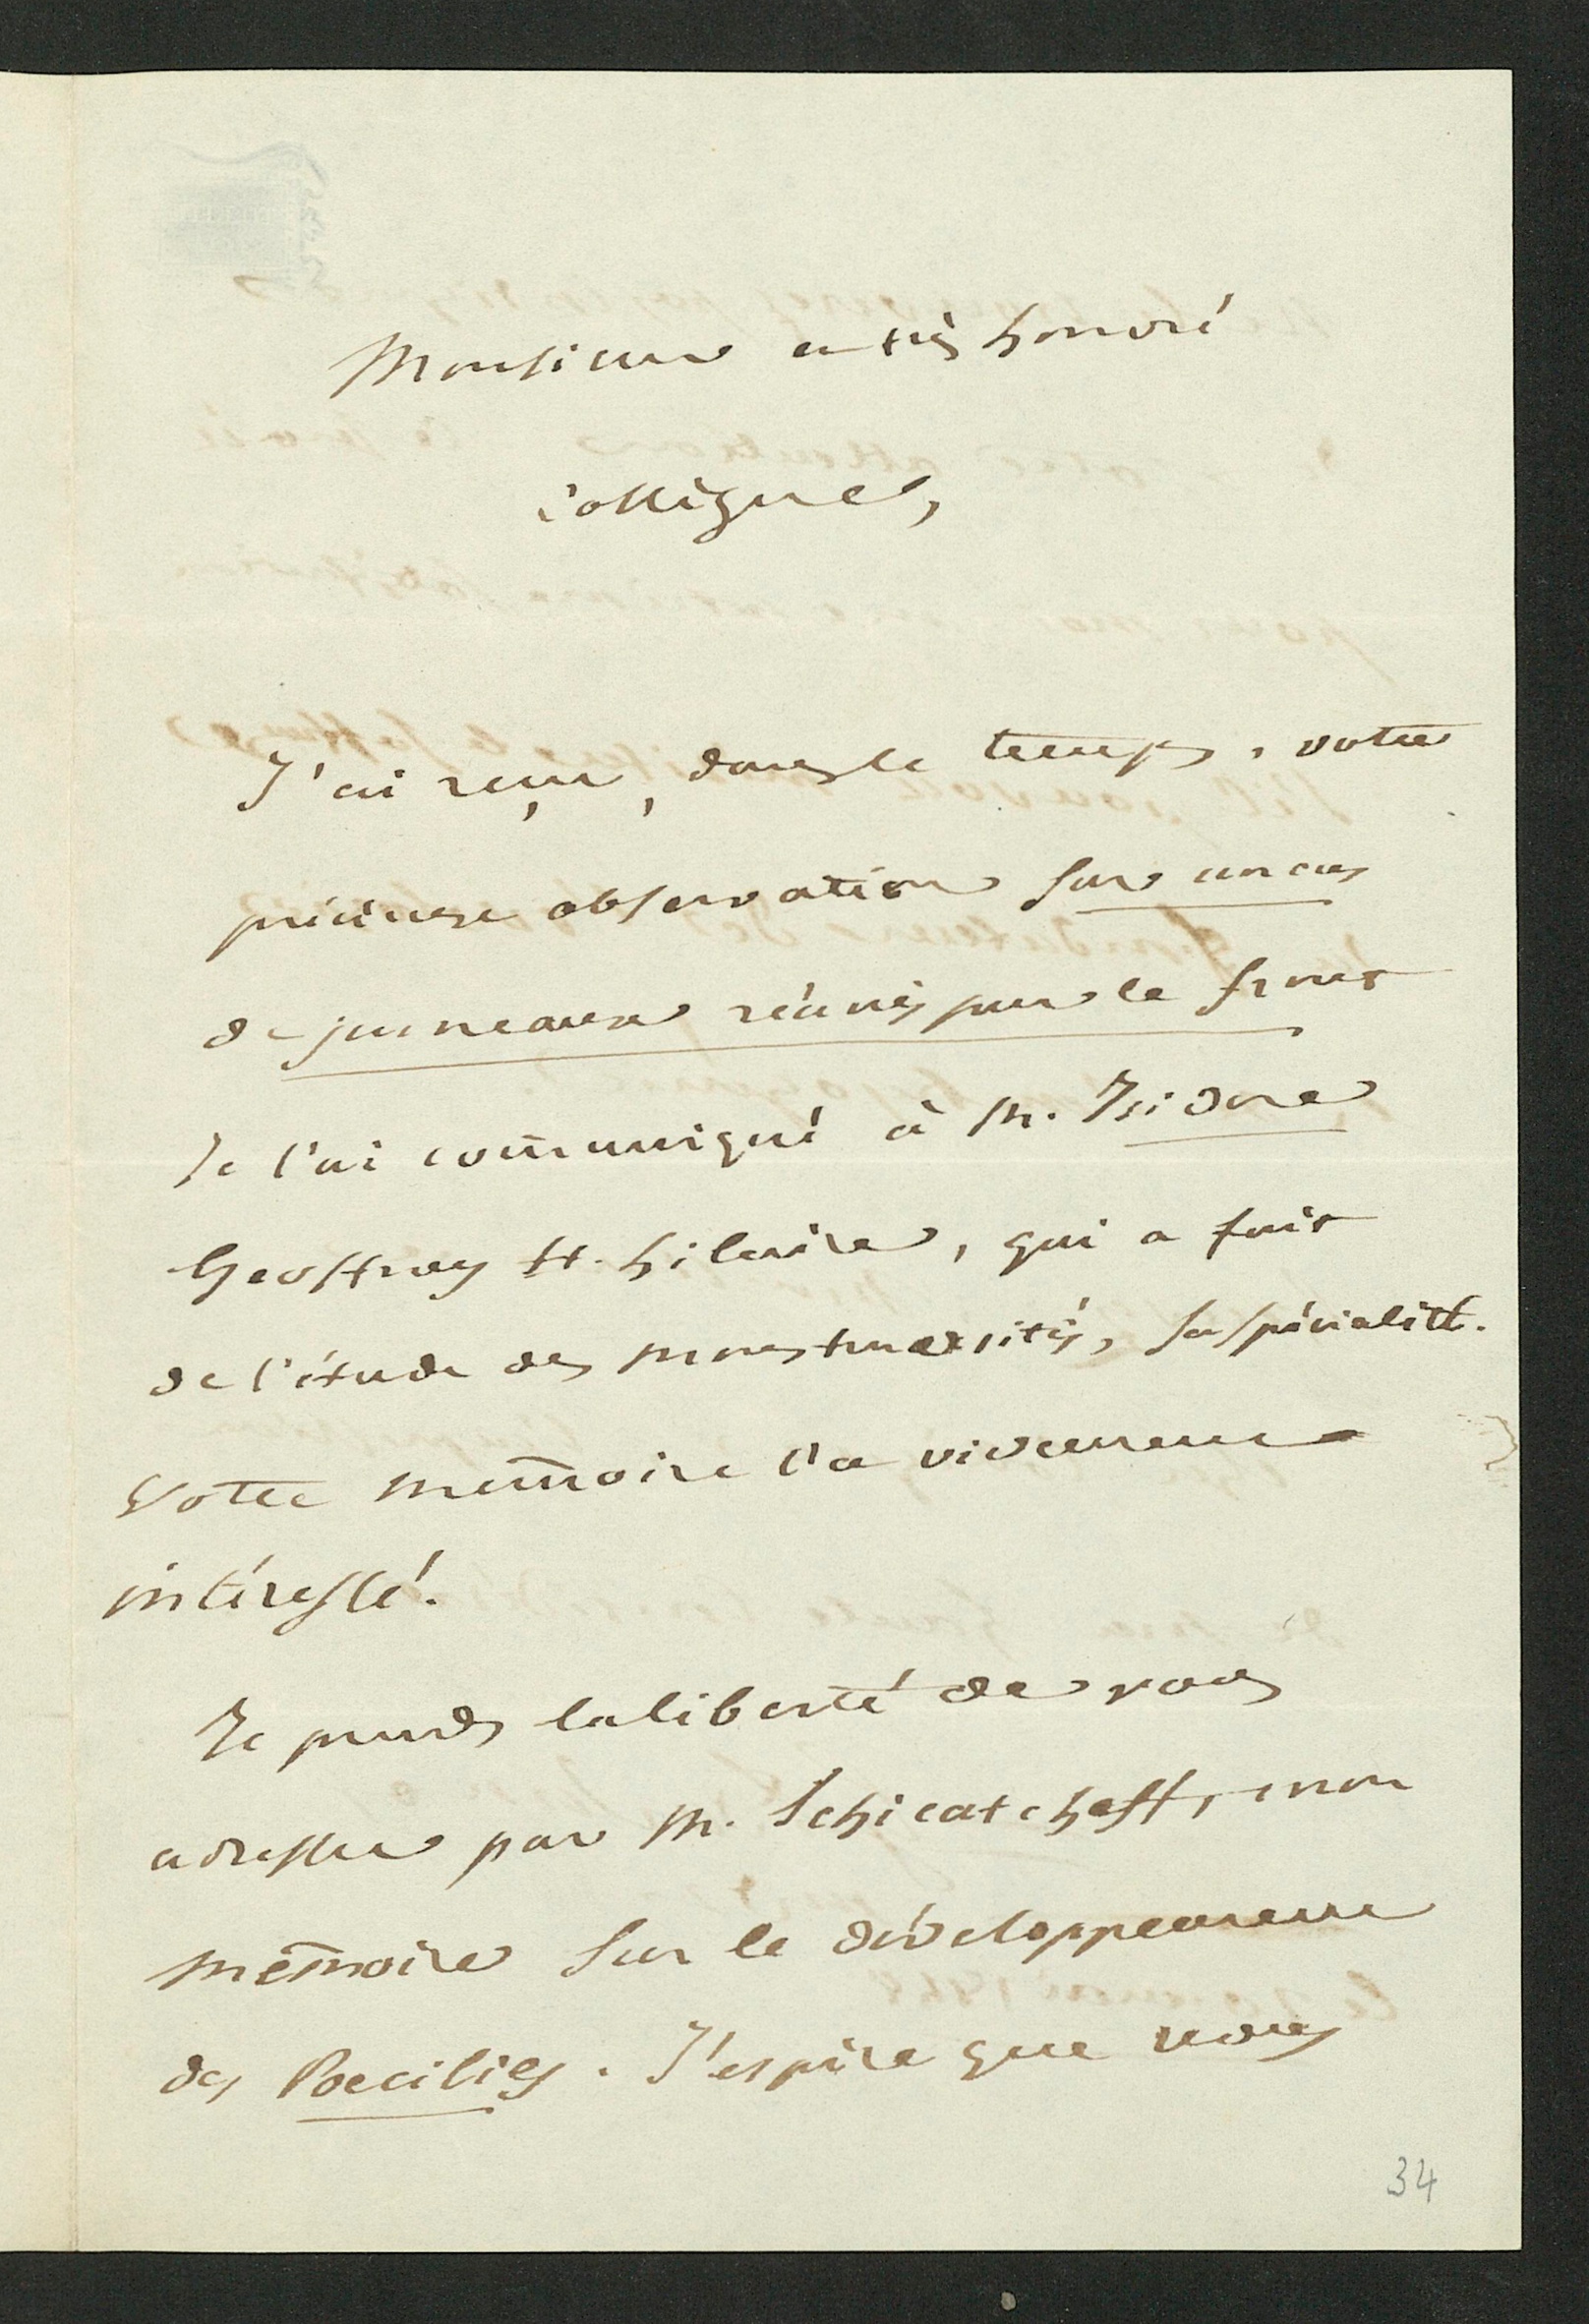 Monsieur et très honoré
collègue,
J'ai reçu, dans le temps, votre
précieuse observation sur un cas
de jumeaux réunis par le front
Je l'ai communiqué à M. Isidore
Geoffroy St. hilaire, qui a fait
de l'étude des monstruosités, sa spécialité.
Votre mémoire l'a vivement
intéressé.
Je prends la liberté de vous
adresser par M. Schicatcheff, mon
mémoire sur le développement
des Poecilies. J'espère que vous
34